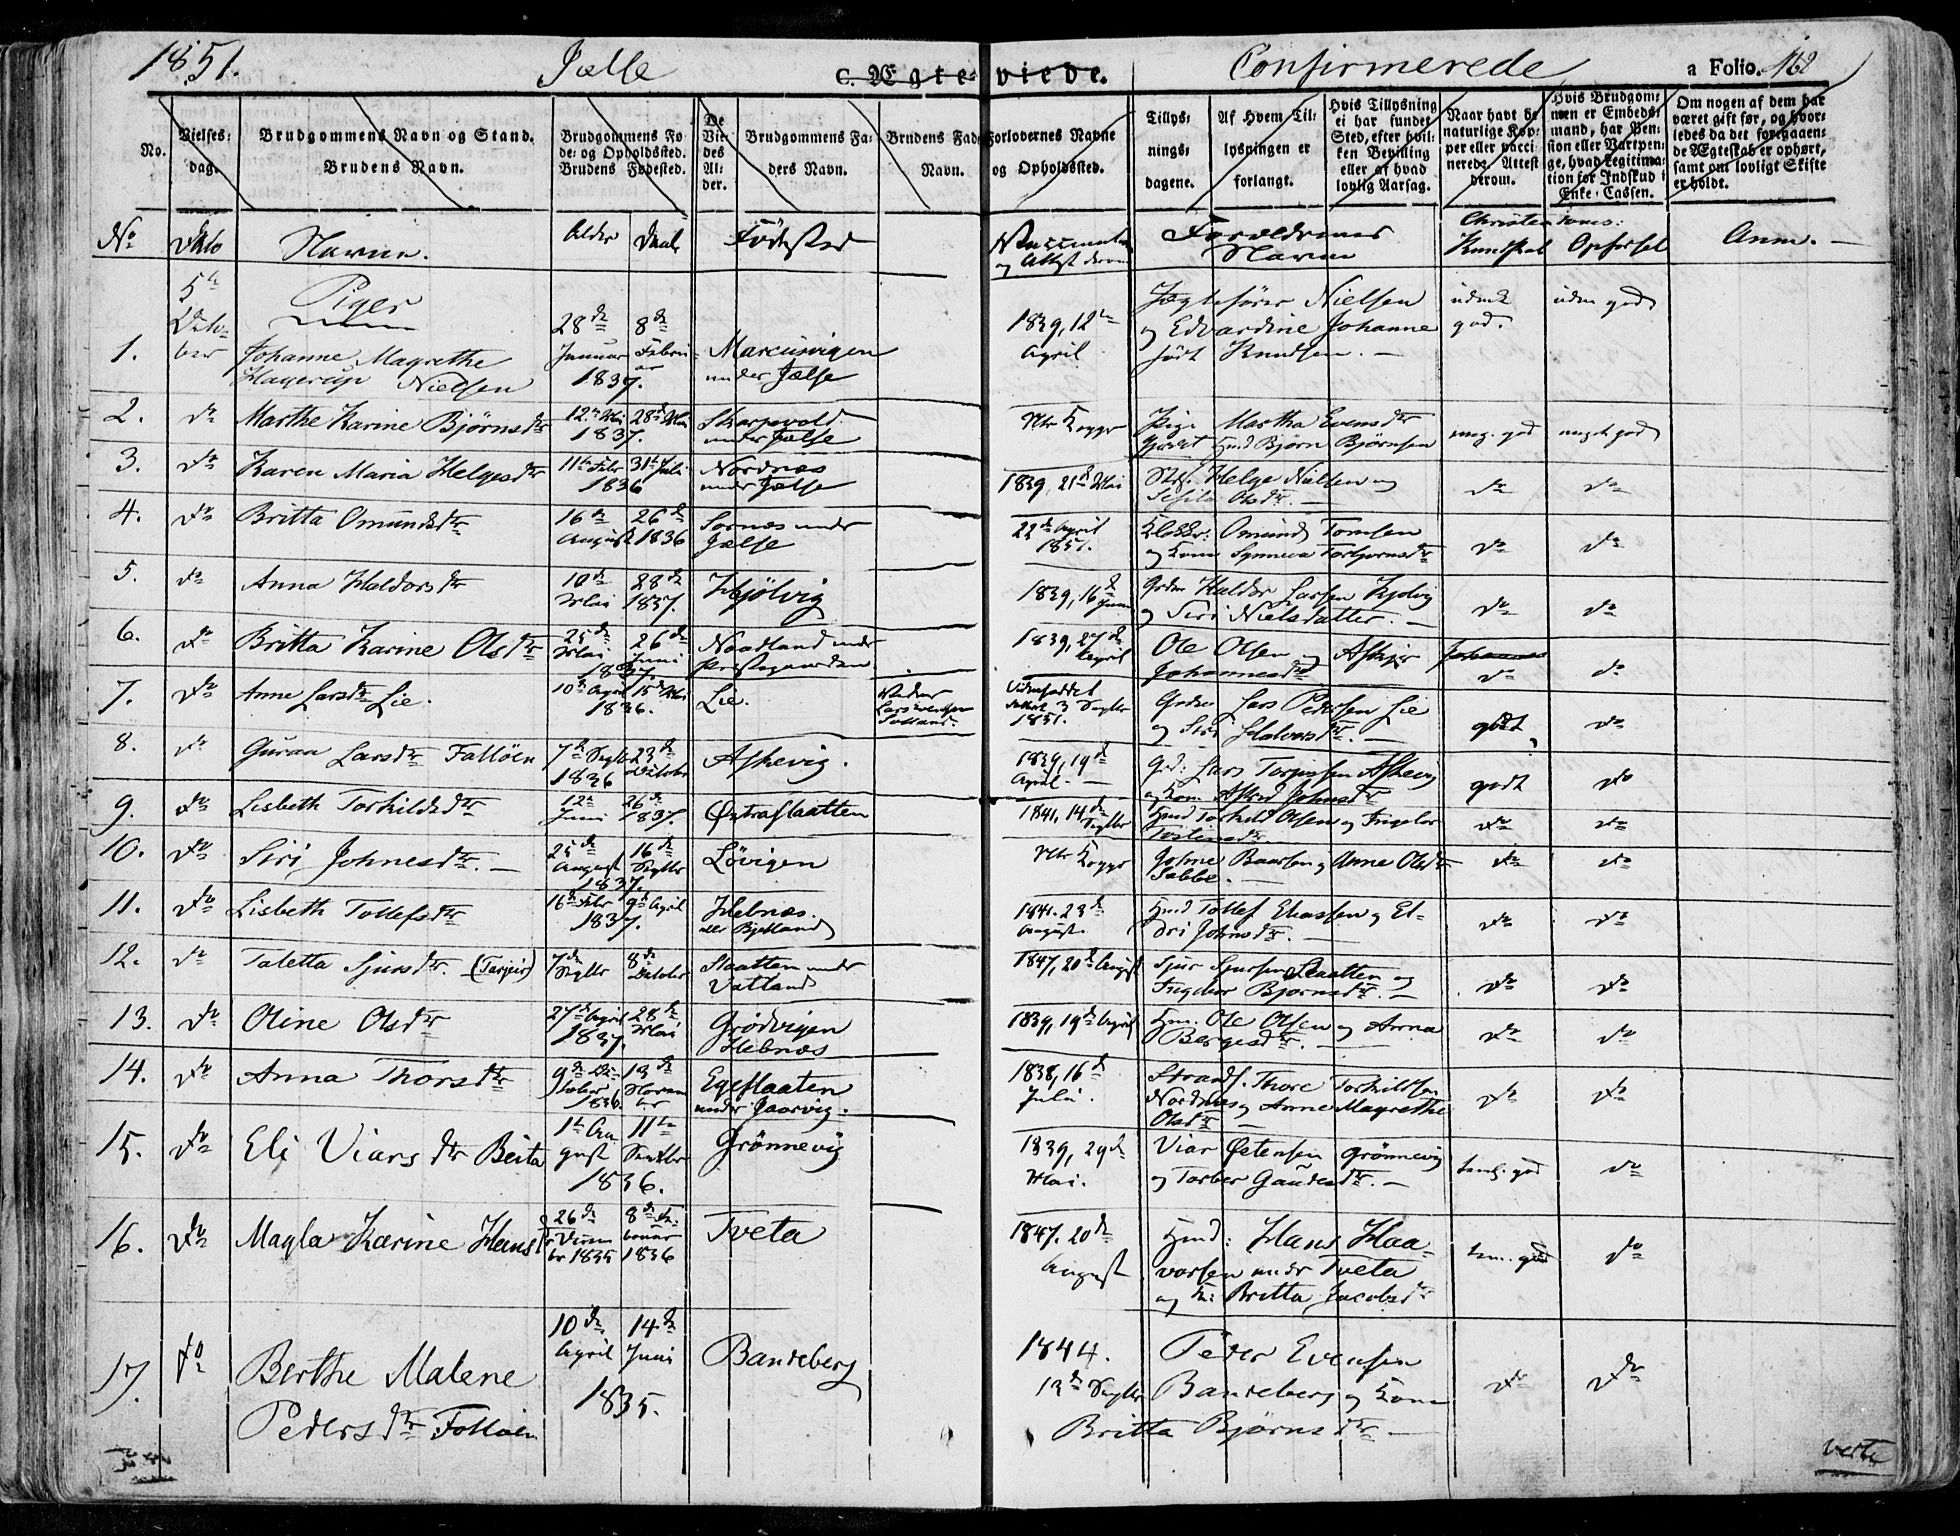 1851. Jælse c. Ægteviede. Confirmerede a Folio. 162
No. Vielsesdag. Brudgommens Navn og Stand. Brudens Navn. Brudgommens Føde- og Opholdssted. Brudens Fødested. De Viedes Alder. Brudgommens Faders Navn. Brudens Faders Navn. Forlovernes Navne og Opholdssted. Tillysningsdagene. Af Hvem Tillysningen er forlangt. Hvis Tillysning ei har fundet Sted, efter hvilken Bevilling eller af hvad lovlig Aarsag. Naar havt de naturlige Kopper eller vaccinerede, Attest derom. Hvis Brudgommen er Embedsmand, har Pension eller Vartpenge, hvad Legitimation for Indskud i Enke-Cassen. Om nogen af dem har været gift før, og hvorledes da det foregaaende Ægteskab er ophørt, samt om lovligt Skifte er holdt.
No Dato Navne. Alder Daab Fødested Vaccination og Attest derom Forældrenes Navne Christendoms: Kundskab Opførsel Anm. —
Piger
1. 5te October Johanne Magrethe Hagerup Nielsen 28de Januar 8de Februar 1837. Marcusvigen under Jælse 1839, 12te April Jægtefører Nielsen og Edvardine Johanne født Knudsen. — udmk god. uden god
2. do Marthe Karine Bjørnsdtr 12te Mai 28de Mai 1837. Skarpevold under Jælse Ntr Kopper Pige Martha Evensdtr Hmd Bjørn Bjørnsen meg. god meget god
3. do Karen Maria Helgesdtr 11te Febr 31te Juli 1836 Nordnæs under Jælse 1839, 21de Mai Strs. Helge Nielsen og Olsdtr. — do do
4. do Britta Omundsdtr 16de August 26de 1836 Sornæs under Jælse 22de April 1851. Klokker: Omund Tomsen og Kone Synneva Torbjørnsdtr do do
5. do Anna Haldorsdtr 10de Mai 28de 1837. Hjølvig 1839, 16de Juni Grdm Haldor Larsen Hjølvig og Siri Nielsdatter. — do do
6. do Britta Karine Olsdtr 25de Mai 26de Juni 1837. Naadland under Præstegaarden 1839, 27de April Ole Olsen og Askjer Johannesdtr do do
7. do Anne Larsdtr Lie. 10de April 15de Mai 1836. Lie. 3 Septbr 1851. Grdm Lars Pedersen Lie og Siri Halvorsdtr. — godt do
8. do Guraa Larsdtr Falløen 7de Septbr 23de October 1836 Askevig. 1839, 19de April. — Grd: Lars Torgersen Askevig og Kone Astrid Johnsdtr godt do
9. do Lisbeth Torkildsdtr 12te Juni 26de 1837. Østraslaatten 1841, 14de Septbr Hmd Torkild Olsen og Ingebor Torstensdtr. do do
10. do Siri Johnesdtr. — 25de August 16de Septbr 1837. Løvigen Ntr Kopper Johne Baarsen og Anne Olsdtr Sabbe. — do do
11. do Lisbeth Tollefsdtr 16de Febr 9de April 1837. Hebnæs. Bjelland 1841. 23de August. Hmd Tollef Eliassen og Eldri Johnsdtr. — do do
12. do Taletta Sjursdtr. (Tarjeir) 7de Septbr 8de October Slaatten under Vatland 1847, 20de August Sjur Sjursen Slaatten og Ingebor Bjørnsdtr. — do do
13. do Oline Olsdtr 27de April 28de Mai 1837. Grødvigen Hebnæs 1839, 19de April Hm. Ole Olsen og Anna Bergesdtr. — do do
14. do Anna Thorsdtr 9de October 13de November 1836. Egeslaaten under Jaarvig. 1838, 16de Juli. Strands. Thore Torkildsen Nordnæs og Anne Magrethe Olsdtr — do do
15. do Eli Viarsdtr Beita 1te August 11te Septbr 1836. Grønnevig 1839, 29de Mai. Viar Østensen Grønnevig og Torber Gaudesdtr. — tem. god do
16. do Magla Karine Hansdtr 26de December 1835 8de Februar 1836 Tveta 1847. 20de August Hmd: Hans Haavorsen under Tveta og K: Britta Jacobsdtr tem. god do
17. do Berthe Malene Pedersdtr Folløen 10de April 14de Juni 1835. Bandeberg 1844. 13de Septbr Peder Evensen Bandeberg og Kone Britta Bjørnsdtr. — do do
verte